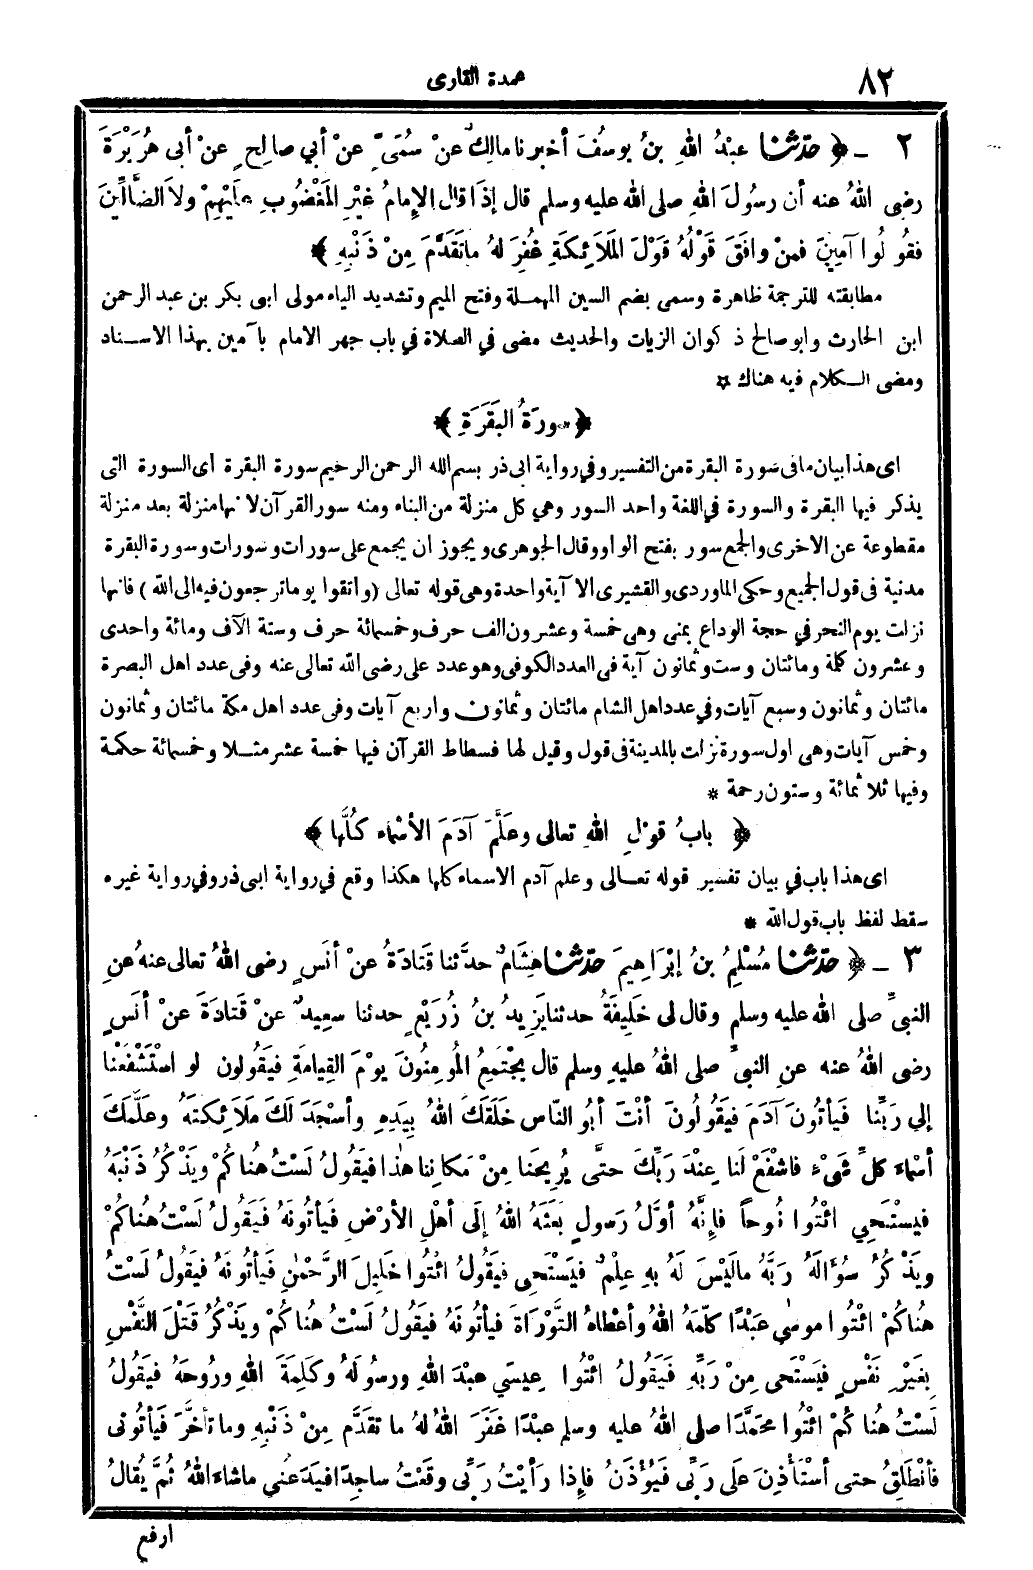 ٨٢
عمدة القارى
٢ ـ ﴿ حدّثنا عبْدُ اللهِ بنُ يوسُفَ أخبرنا مالِكٌ عنْ سُمَىٍّ عنْ أبي صالِحٍ عنْ أبى هُرَيْرَةَ
رضى اللهُ عنه أن رسُولَ اللهِ صلى الله عليه وسلم قال إذَا قال الإمامُ غيْرِ المَغْضُوبِ علَيْهِمْ ولاَ الضَّالِّينَ
فقُولُوا آمِينَ فمنْ وافَقَ قَوْلُهُ قَوْلَ المَلاَئِكَةِ غُفِرَ لهُ ماتَقَدَّمَ مِنْ ذَنْبِهِ ﴾
مطابقته للترجمة ظاهرة وسمى بضم السين المهملة وفتح الميم وتشديد الياء مولى ابى بكر بن عبد الرحمن
ابن الحارث وابو صالح ذكوان الزيات والحديث مضى في الصلاة في باب جهر الامام بآمين بهذا الاسناد
ومضى الكلام فيه هناك *
﴿ سورةُ البَقَرَةِ ﴾
اى هذا بيان مافى سورة البقرة من التفسير وفي رواية ابى ذر بسم الله الرحمن الرحيم سورة البقرة أى السورة التى
يذكر فيها البقرة والسورة في اللغة واحد السور وهي كل منزلة من البناء ومنه سور القرآن لانها منزلة بعد منزلة
مقطوعة عن الاخرى والجمع سور بفتح الواو وقال الجوهرى ويجوز ان يجمع على سورات وسورات وسورة البقرة
مدنية فى قول الجميع وحكى الماوردى والقشيرى الا آية واحدة وهى قوله تعالى (واتقوا يوما ترجعون فيه الى الله) فانها
نزلت يوم النحر في حجة الوداع بمنى وهى خمسة وعشرون الف حرف وخمسمائة حرف وستة الآف ومائة واحدى
وعشرون كلمة ومائتان وست وثمانون آية فى العدد الكوفى وهو عدد على رضى الله تعالى عنه وفى عدد اهل البصرة
مائتان وثمانون وسبع آيات وفي عدد اهل الشام مائتان وثمانون واربع آيات وفى عدد اهل مكة مائتان وثمانون
وخمس آيات وهى اول سورة نزلت بالمدينة فى قول وقيل لها فسطاط القرآن فيها خمسة عشر مثلا وخمسمائة حكمة
وفيها ثلاثمائة وستون رحمة *
﴿ بابُ قوْلِ اللهِ تعالى وعَلَّمَ آدَمَ الأسْماء كُلَّها ﴾
اى هذا باب في بيان تفسير قوله تعالى وعلم آدم الاسماء كلها هكذا وقع في رواية ابى ذر وفي رواية غيره
سقط لفظ باب قول الله *
٣ ـ ﴿ حدّثنا مُسْلِمُ بنُ إبْرَاهِيمَ حدّثنا هِشَامٌ حدَّثنا قَتَادَةُ عنْ أنَسٍ رضى اللهُ تعالى عنهُ عنِ
النبىِّ صلى اللهُ عليه وسلم وقال لى خَلِيفَةُ حدثنا يَزِيدُ بنُ زُرَيْعٍ حدثنا سعِيدٌ عنْ قَتَادَةَ عنْ أنَسٍ
رضى اللهُ عنه عنِ النبىِّ صلى اللهُ عليهِ وسلم قال يجْتَمِعُ المُومِنُونَ يوْمَ القِيامَةِ فيَقُولون لو اسْتَشْفَعْنا
إلي رَبِّنا فَيأتُونَ آدَمَ فيَقُولُونَ أنْتَ أبُو النّاس خَلَقَكَ اللهُ بِيَدِهِ وأسْجَدَ لَكَ مَلاَئِكَتَهُ وعلَّمَكَ
أسْماءَ كلِّ شَىْءٍ فاشْفَعْ لَنا عِنْدَ رَبِّكَ حتَّى يُرِيحَنا مِنْ مَكانِنا هٰذا فيَقُولُ لَسْتُ هُناكُمْ ويَذْكُرُ ذَنْبَهُ
فيَستَحِي ائْتُوا نُوحاً فإِنَّهُ أوَّلُ رَسولٍ بَعَثَهُ اللهُ إلَى أهْلِ الأرْضِ فَيأتُونَهُ فَيَقُولُ لَسْتُ هُناكُمْ
ويَذْكُرُ سُؤَالَهُ رَبَّهُ مالَيْسَ لَهُ بهِ عِلْمٌ فيَسْتَحِى فيَقُولُ ائْتُوا خلِيلَ الرَّحْمٰنِ فَيأتُونَهُ فيَقُولُ لَسْتُ
هُناكُمْ ائْتُوا موسٰى عَبْدًا كلّمَهُ اللهُ وأعْطاهُ التَّوْرَاةَ فيأتُونَهُ فيَقُولُ لَسْتُ هُناكُمْ ويَذْكُرُ قَتْلَ النَّفْسِ
بِغَيْرِ نَفْسٍ فيَسْتَحى مِنْ رَبِّهِ فَيَقُولُ ائْتُوا عِيسَي عبْدَ اللهِ ورسُولَهُ وكَلِمَةَ اللهِ ورُوحَهُ فيَقُولُ
لَسْتُ هُناكُمْ ائْتُوا محَمَّدًا صلى اللهُ عليه وسلم عبْدًا غَفَرَ اللهُ لهُ ما تقَدَّم مِنْ ذَنْبِهِ وما تأخَّرَ فَيأتُونى
فأنْطَلِقُ حتى أسْتَأْذِنَ عَلَى رَبِّى فَيُؤْذَنُ فإِذا رَأيْتُ رَبِّى وقَعْتُ ساجِدًا فيَدَعُنِي ماشاءَ اللهُ ثُمَّ يُقالُ
ارفع